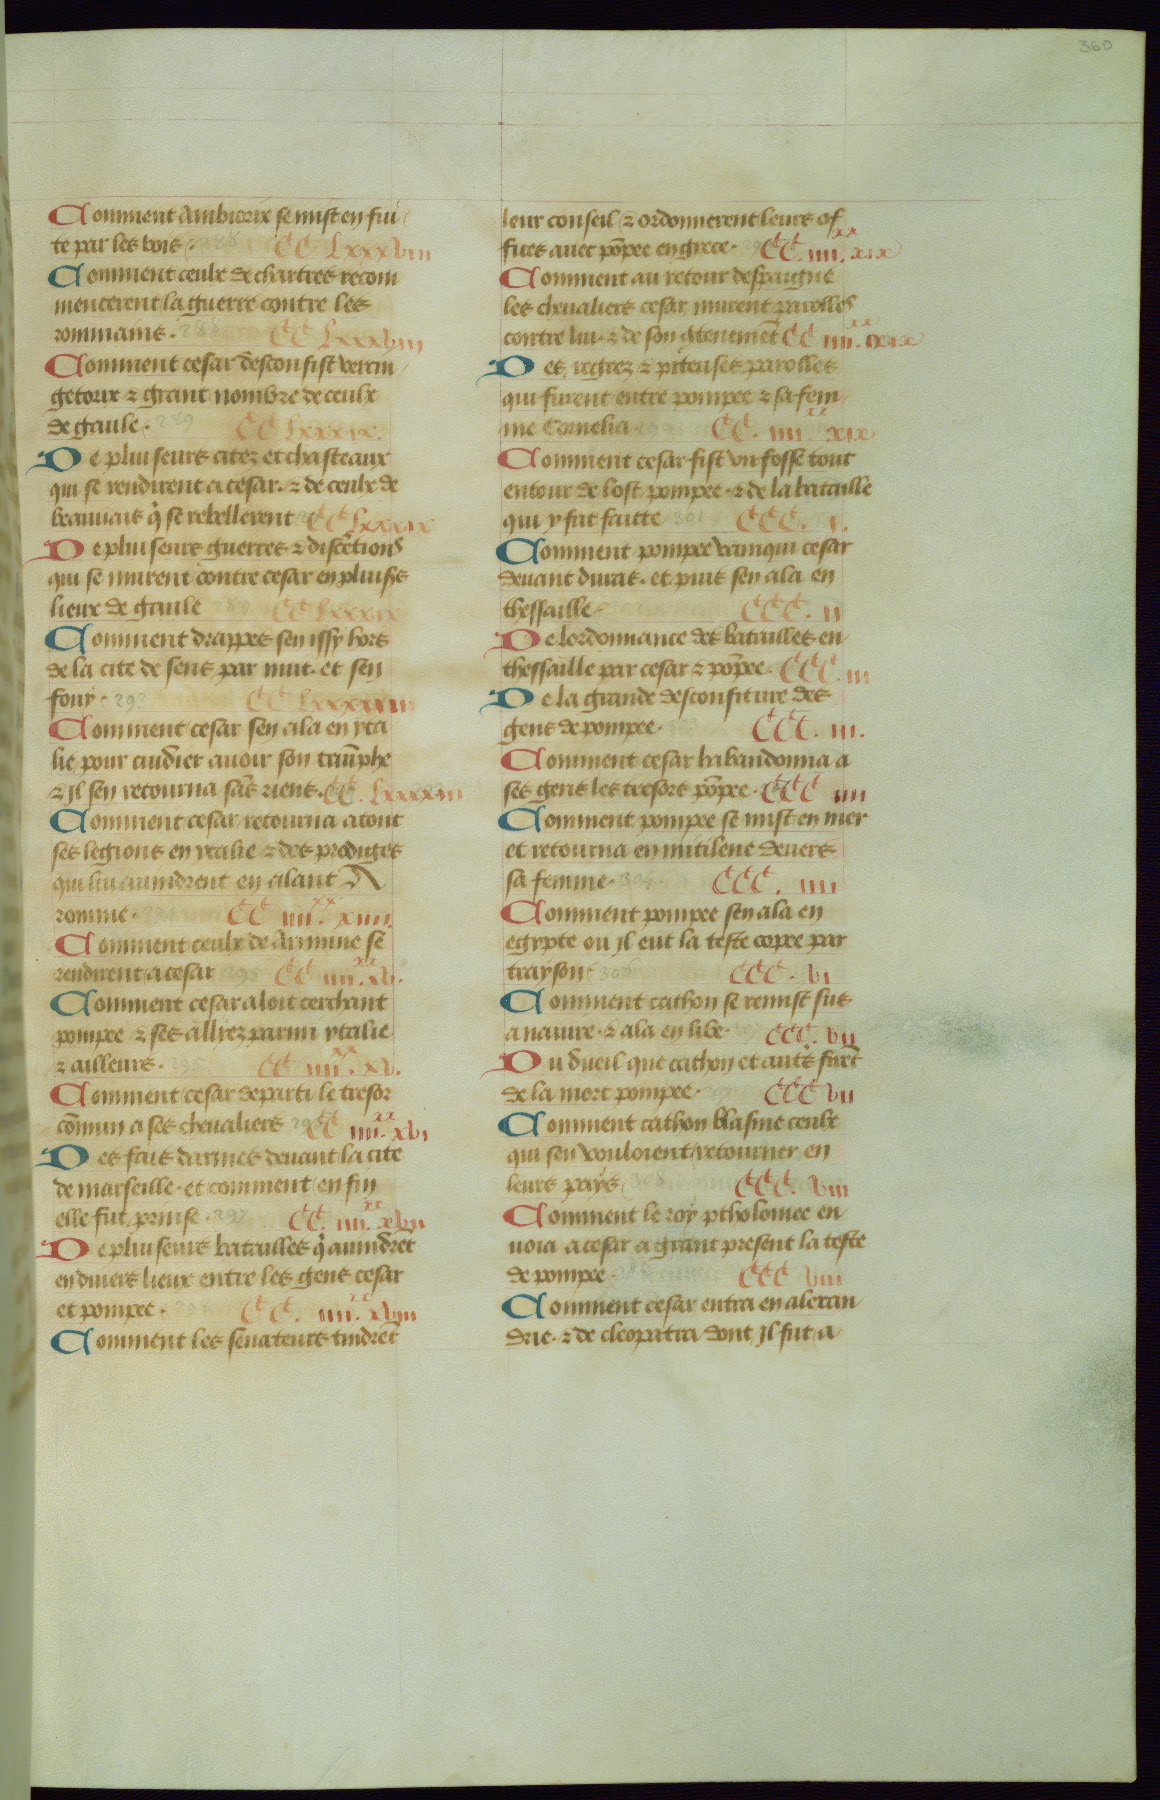 360
Comment Ambiorix se mist en fui
te par les bois. CC Lxxxviii
Comment ceulx de chartres recom
mencerent la guerre contre les
rommains. 288 CC Lxxxviii
Comment cesar desconfist vercin
getorix ⁊ grant nombre de ceulx
de gaule. 289 CC Lxxxix.
De pluiseurs citez et chasteaux
qui se rendirent a cesar. ⁊ de ceulx de
beauuais q̓ se rebellerent CC Lxxxix
De pluiseurs guerres ⁊ discētions
qui se murent contre cesar en pluiss̃
lieux de gaule 289 CC Lxxxix
Comment drappes sen issy hors
de la cite de sens par nuit. et sen
fouy. 293 CC Lxxxxiii
Comment cesar sen ala en yta
lie pour cuidier auoir son triūphe
⁊ jl sen retourna sās riens. CC. Lxxxxiii
Comment cesar retourna atout
ses legions en ytalie ⁊ des prodiges
qui lui auindrent en alant A
romme. 294 CC iiii xx. xiiii.
Comment ceulx de Arimine se
rendirent a cesar 295 CC iiii xx. xv.
Comment cesar aloit cerchant
pompee ⁊ ses alliyez parmi ytalie
⁊ ailleurs. 295 CC iiii xx. xv.
Comment cesar departi le tresor
cōmun a ses cheualiers 296 CC iiii xx. xvi
Des fais darmes deuant la cite
de marseille. et comment en fin
elle fut prinse. 297 CC. iiii xx. xvii
De pluiseurs batailles q̓ auindrēt
en diuers lieux entre les gens cesar
et pompee. CC. iiii xx. xviii
Comment les senateurs tindrēt
leur conseil ⁊ ordonnerent leurs of
fices auec pōpee en grece. CC. iiii xx. xix
Comment au retour despaigne
les cheualiers cesar murent parolles
contre lui. ⁊ de son 9tenemēt CC iiii xx. xix
Des regrez ⁊ piteuses parolles
qui furent entre pompee ⁊ sa fem
me Cornelia 299 CC. iiii xx xix
Comment cesar fist vn fosse tout
entour de lost pompee. ⁊ de la bataille
qui y fut faitte 301 CCC. i.
Comment pompee vainqui cesar
deuant duras. et puis sen ala en
thessaille. CCC. ii
De lordonnance des batailles en
thessaille par cesar ⁊ pōpee. CCC. iii
De la grande desconfiture des
gens de pompee. 303 CCC. iii.
Comment cesar habandonna a
ses gens les tresors pōpee. CCC iiii
Comment pompee se mist en mer
et retourna en mitilene deuers
sa femme. 304 CCC. iiii
Comment pompee sen ala en
egypte ou jl eut la teste copee par
trayson. 306 CCC. vi
Comment cathon se remist sus
a nauire. ⁊ ala en libe. CCC. vii
Du dueil que cathon et autēs firēt
de la mort pompee. CCC vii
Comment cathon blasme ceulx
qui sen vouloient retourner en
leurs pays 308 CCC. viii
Comment le roy ptholomee en
uoia a cesar a grant present la teste
de pompee. CCC viii
Comment cesar entra en alexan
drie. ⁊ de cleopatra dont jl fut a